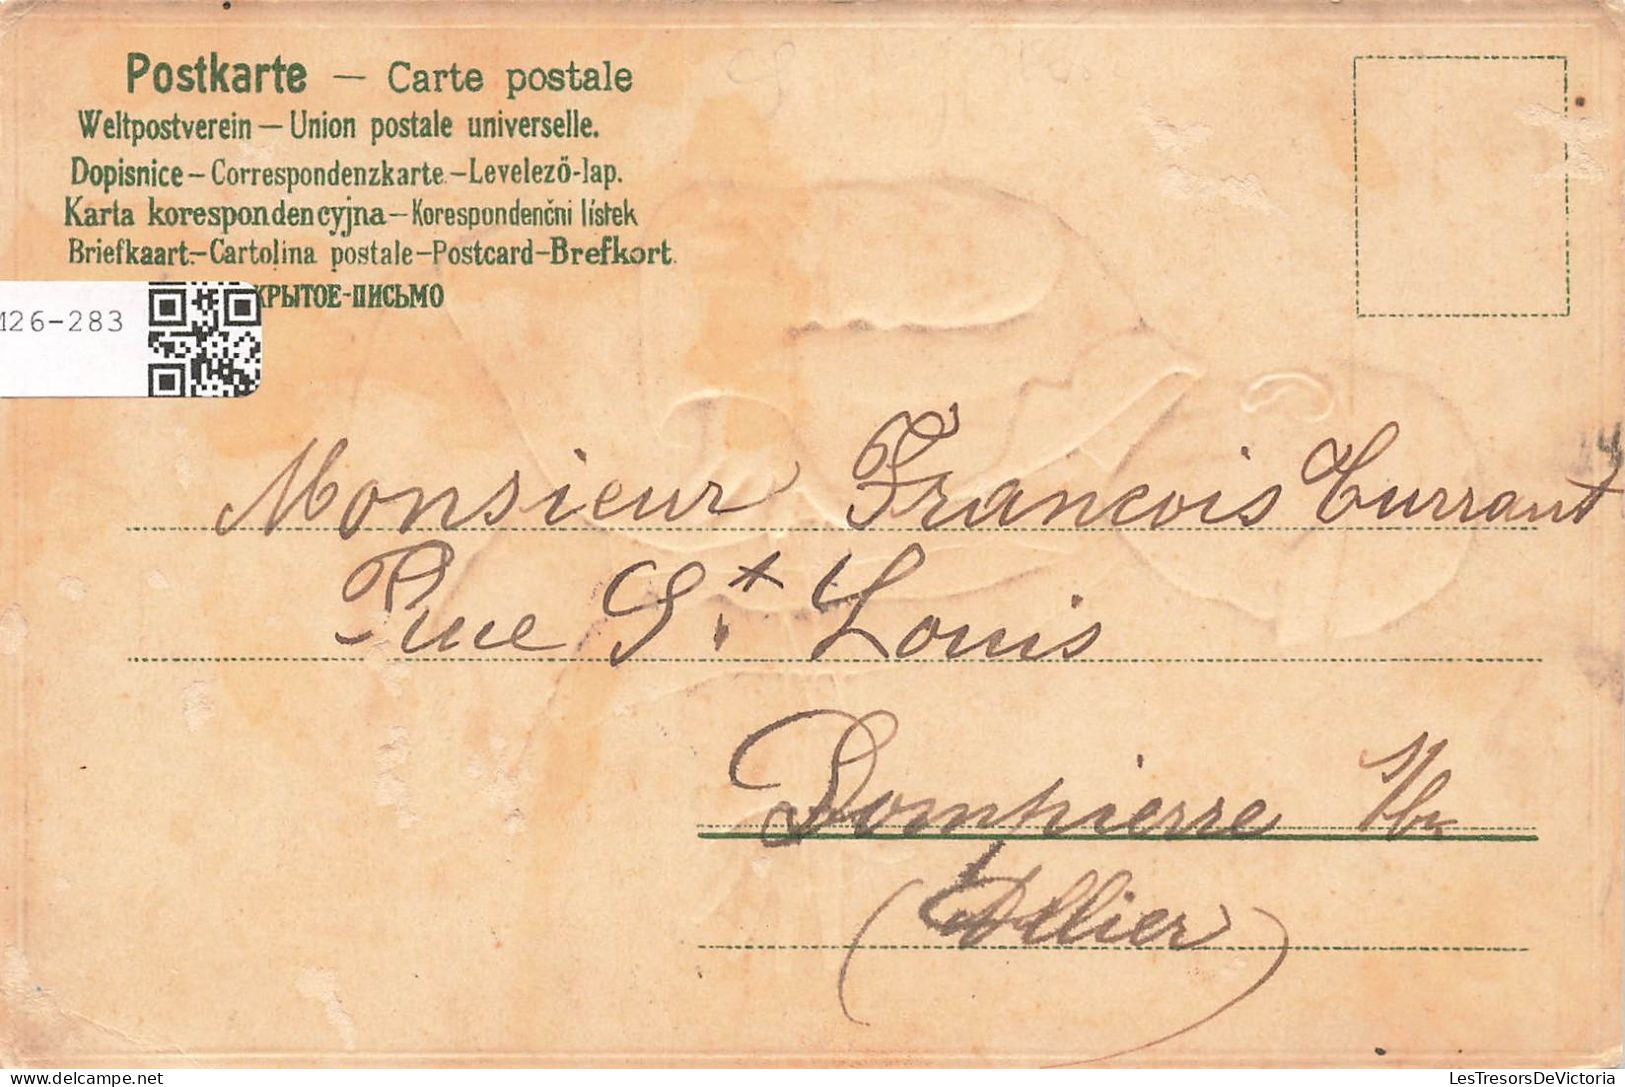 Postkarte — Carte postale
Weltpostverein — Union postale universelle.
Dopisnice – Correspondenzkarte – Levelező-lap.
Karta korespondencyjna – Korespondenčni lístek
Briefkaart – Cartolina postale – Postcard – Brefkort.
КРЫТОЕ-ПИСЬМО
126-283
Monsieur Francois Turrant
Rue St Louis
Dompierre s/
(Allier)
LesTresorsDeVictoria
delcampe.net